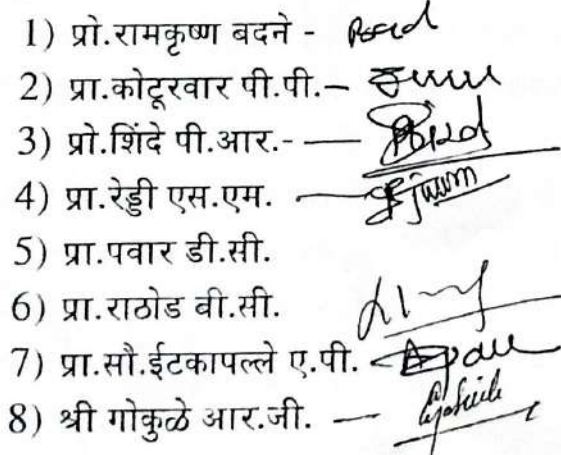 1) प्रो.रामकृष्ण बदने -
2) प्रा.कोटूरवार पी.पी.–
3) प्रो.शिंदे पी.आर.- —
4) प्रा.रेड्डी एस.एम. —
5) प्रा.पवार डी.सी.
6) प्रा.राठोड बी.सी.
7) प्रा.सौ.ईटकापल्ले ए.पी.
8) श्री गोकुळे आर.जी. —